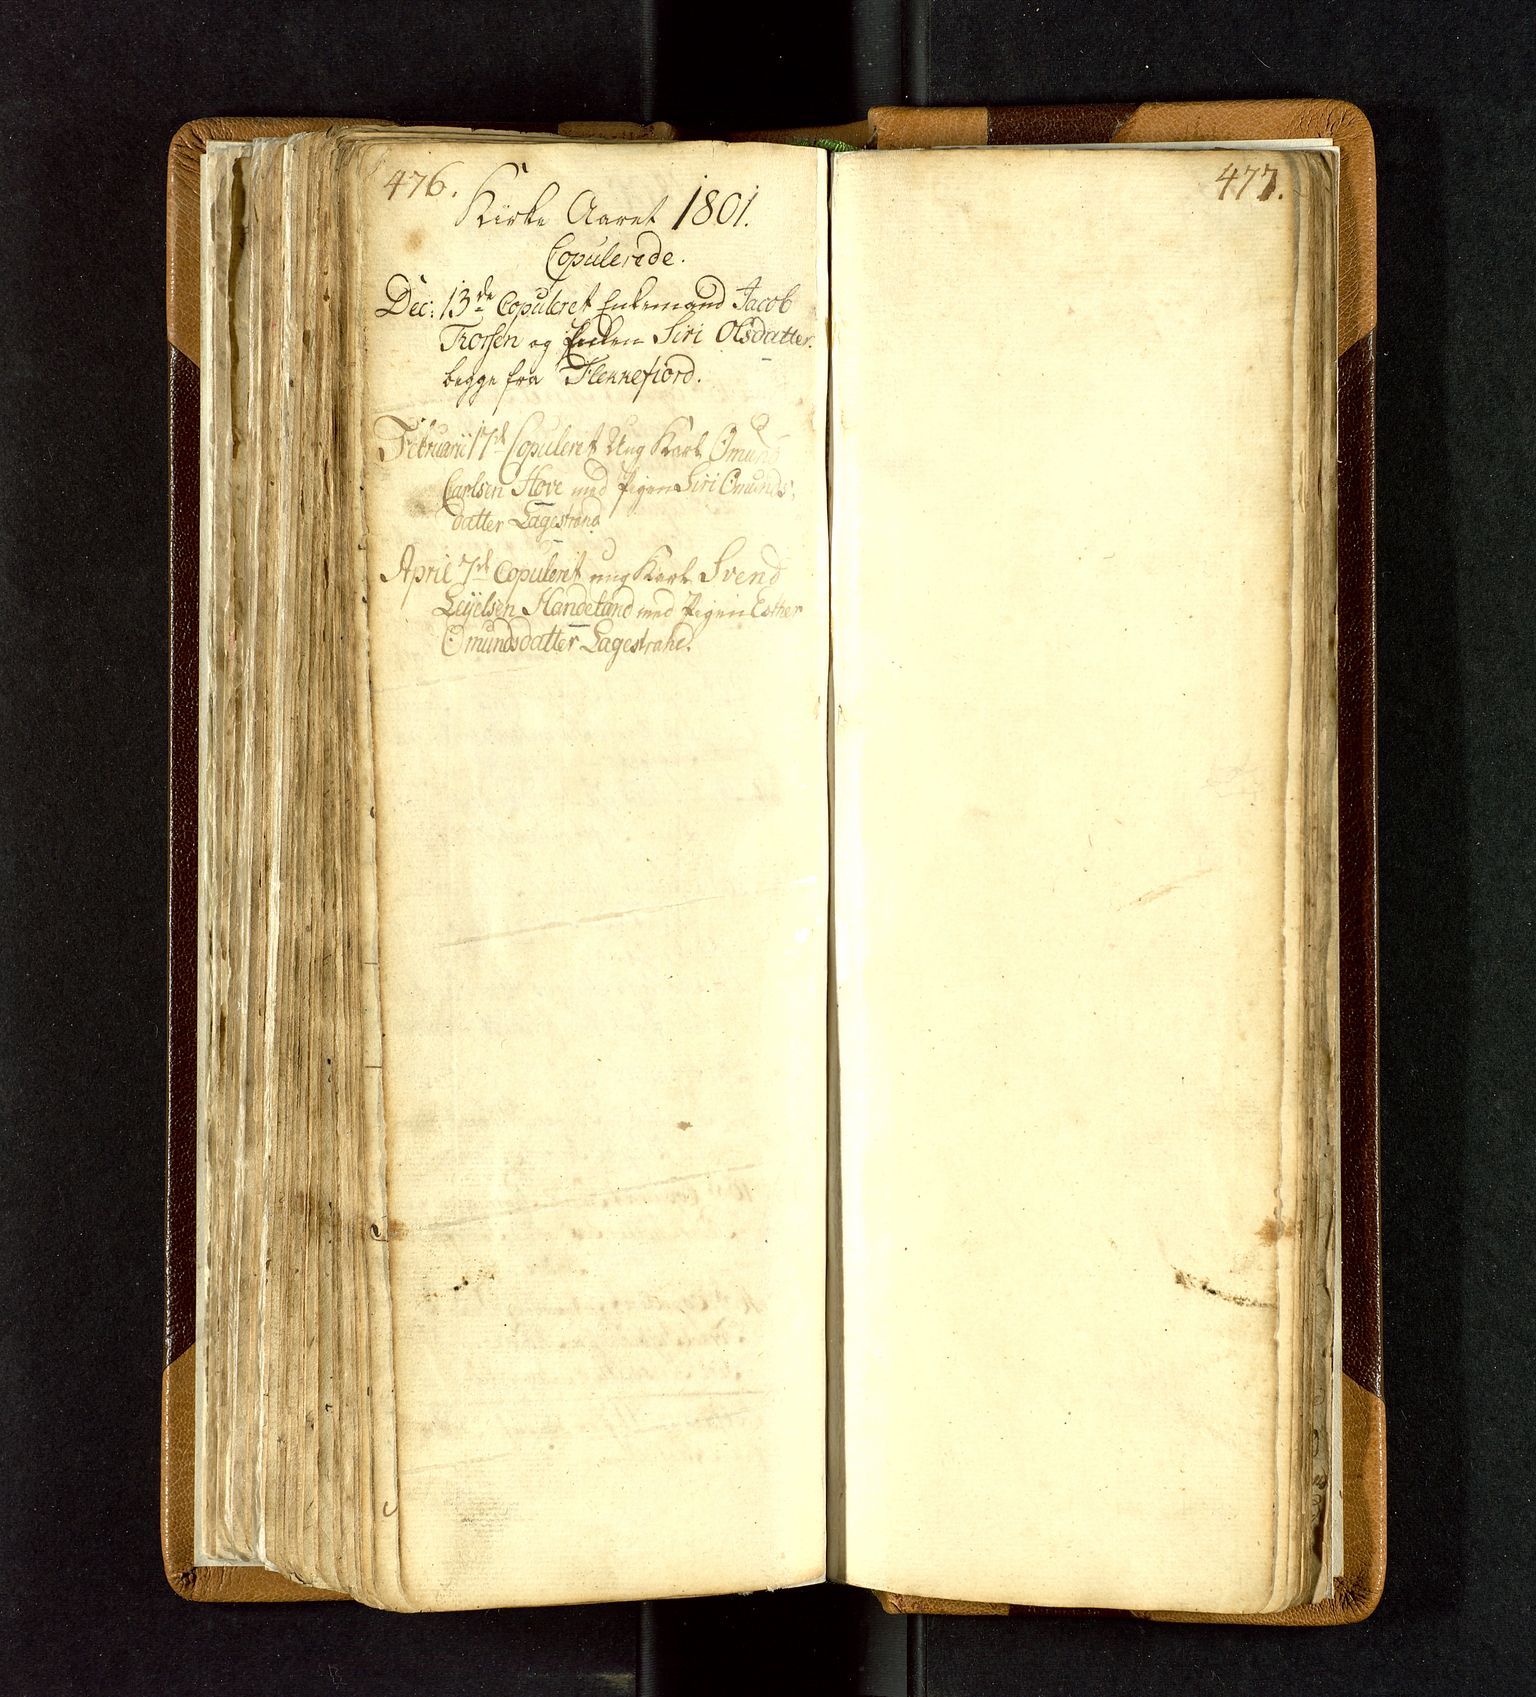 476.
Kirke Aaret 1801.
Copulerede.
Dec: 13de Copuleret Enkemand Jacob
Trossen og Enken Siri Olsdatter.
begge fra Flekkefiord.
Februarii 17de Copuleret Ung Karl Omund
Carlsen Hove med Pigen Siri Omunds-
datter Lagestrand
April 7de Copuleret ung Karl Svend
Handeland med Pigen Esther
Omundsdatter Lagestrand.
477.